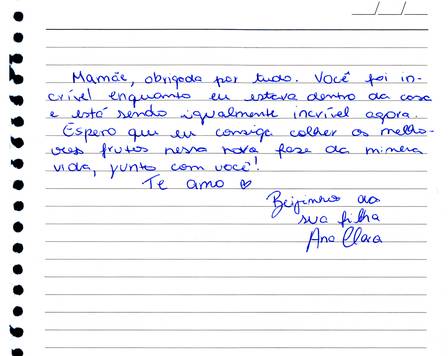 __/__/__
Mamãe, obrigada por tudo. Você foi in-
crível enquanto eu estava dentro da casa
e está sendo igualmente incrível agora.
Espero que eu consiga colher os melho-
res frutos nessa nova fase da minha
vida, junto com você!
Te amo ♡
Beijinho da
sua filha
Ana Clara